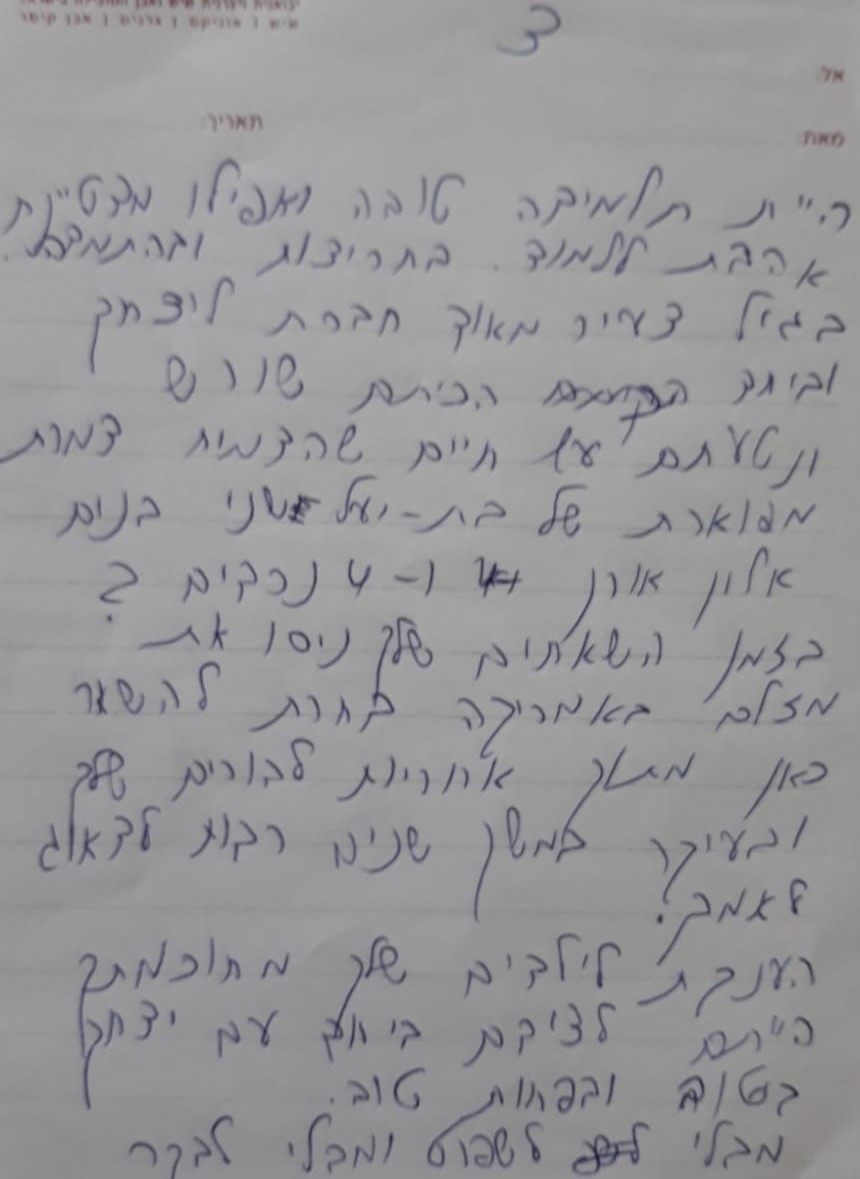 שיש | אוניקס | גרניט | אבן קיסר
3
אל:
תאריך:
מאת:
היית תלמידה טובה ואפילו מצטיינת
אהבת ללמוד. בחריצות ובהתמדה.
בגיל צעיר מאוד חברת ליצחק
וביחד הכיתם שורש
ונטעתם עץ חיים שהצמיח צמרת
מפוארת של בת-יעל שני בנים
אלון אורן ו-4 נכדים
בזמן שאחים שלך ניסו את
מזלם באמריקה בחרת להשאר
כאן מתוך אחריות להורים שלך
ובעיקר במשך שנים רבות לדאוג
לאמך.
הענקת לילדים שלך מחוכמתך
הייתם לצידם ביחד עם יצחק
בטוב ובפחות טוב.
מבלי לשפוט ומבלי לבקר